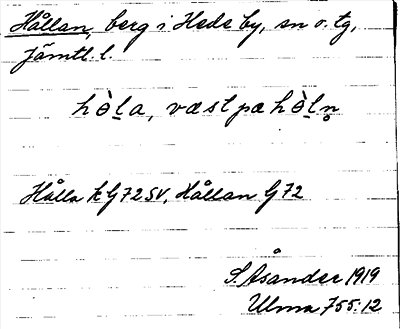 Hållan, berg i Hede by, sn o. tg,
Jämtl. l.
hòl̲a, væst pa hòl̲n̥
Hålla k G72SV, Hållan G72
S. Åsander 1919
Ulma 755:12